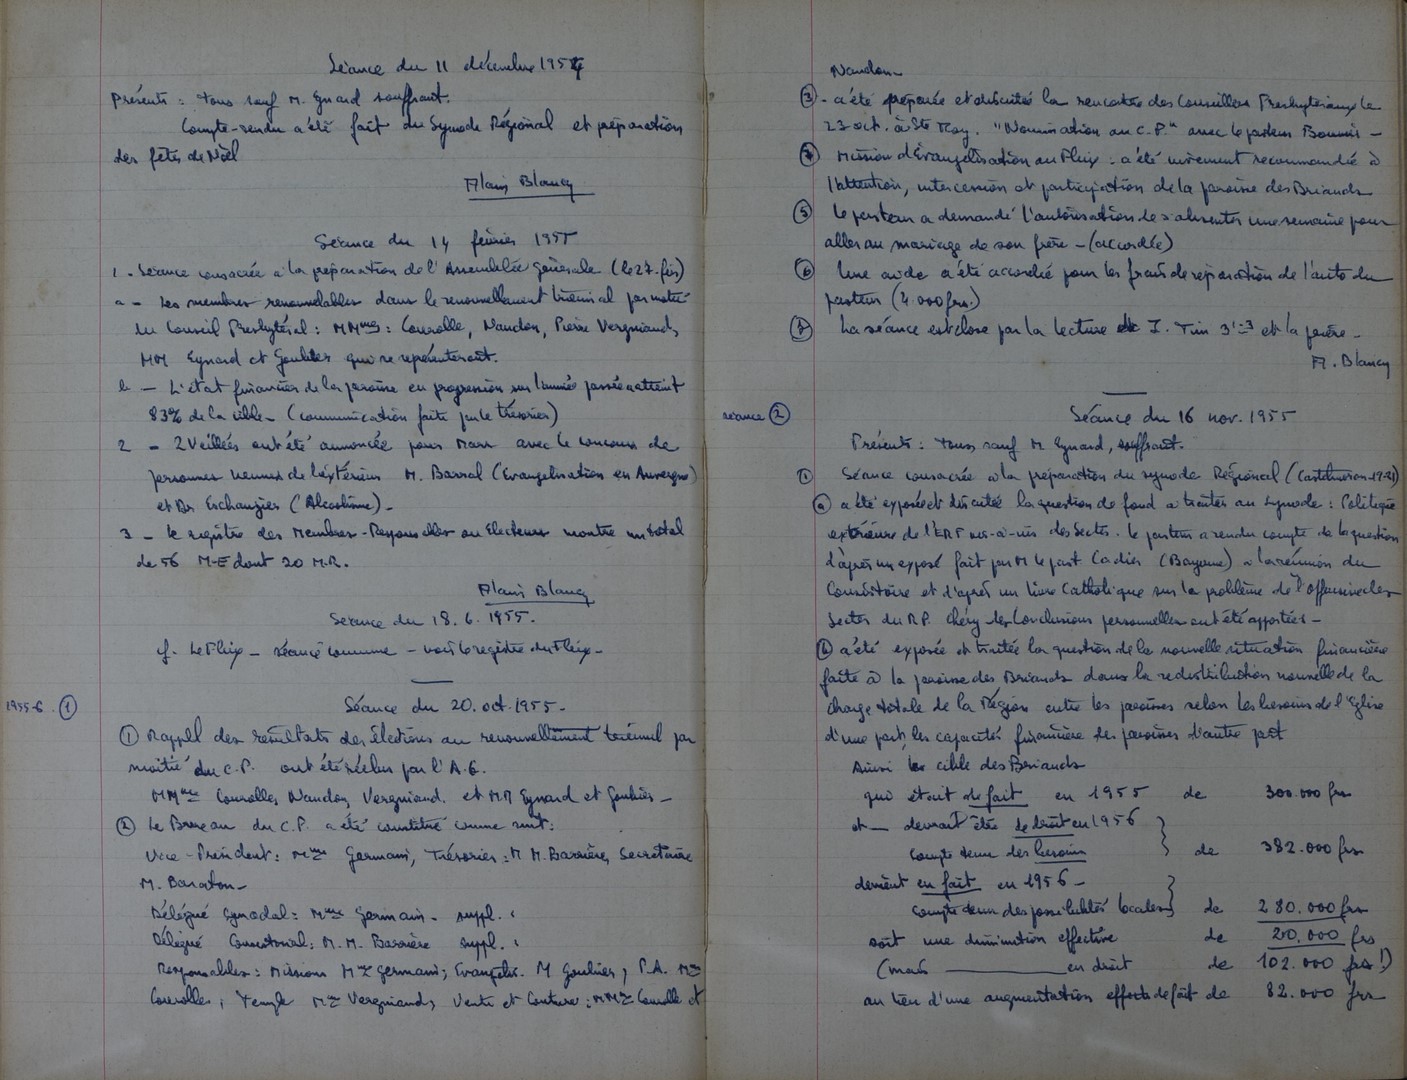 Séance du 11 décembre 1954
Présents : tous sauf M. Eynard souffrant.
Compte-rendu a été fait du Synode Régional et préparation
des fêtes de Noël
Alain Blancy
Séance du 14 février 1955
1 - Séance consacrée à la préparation de l'Assemblée générale (le 27. fév)
a - Les membres renouvelables dans le renouvellement triennal par moitié
du Conseil Presbytéral : MMmes : Courolle, Naudon, Pierre Vergniaud,
MM Eynard et Goulier qui se représenteront.
b - L'état financier de la paroisse en progression sur l'année passée atteint
83% de la cible - (communication faite par le trésorier)
2 - 2 Veillées ont été annoncée pour Mars avec le concours de
personnes venues de l'extérieur M. Barral (Evangelisation en Auvergne)
et Dr Eschangier (Alcoolisme) -
3 - Le registre des Membres-Responsables ou Electeurs montre un total
de 56 M-E dont 20 M.R.
Alain Blancy
Séance du 18. 6. 1955.
cf. Le Fleix - séance commune - voir le registre du Fleix -
1955-6. ①
Séance du 20. oct. 1955 -
① Rappel des résultats des élections au renouvellement triennal par
moitié du C.P. ont été réélus par l'A.G.
MMmes Courolles Naudon, Vergniaud. et MM Eynard et Goulier -
② Le Bureau du C.P. a été constitué comme suit :
Vice-Président : Mme Germain, Trésorier : M M. Barrière, Secrétaire
M. Baraton -
Délégué Synodal : Mme Germain - suppl. "
Délégué Consistorial : M. M. Barrière suppl. "
Responsables : Missions Mme Germain ; Evangélis. M Goulier, P.A. Mme
Courolles, Temple Mme Vergniaud, Vente et Couture : MMmes Courolle et
Naudon -
③ - a été préparée et discutée la rencontre des Conseillers Presbytéraux le
23 oct. à Ste Foy. "Nomination au C.P." avec le pasteur -
④ Mission d'Évangélisation au Fleix : a été vivement recommandée à
l'attention, intercession et participation de la paroisse des Briands
⑤ Le pasteur a demandé l'autorisation de s'absenter une semaine pour
aller au mariage de son frère - (accordée)
⑥ Une aide a été accordée pour les frais de réparation de l'auto du
pasteur (4.000 frs.)
⑦ La séance est close par la lecture de I. Tim 3 et la prière -
A. Blancy
séance ②
Séance du 16 nov. 1955
Présents : Tous sauf M. Eynard, souffrant.
① Séance consacrée à la préparation du synode Régional (Castelmoron 19-21)
ⓐ a été exposée et discutée la question de fond à traiter au Synode : Politique
extérieure de l'ERF vis-à-vis des Sectes. Le pasteur a rendu compte de la question
d'après un exposé fait par M le past Cadier (Bayonne) à la réunion du
Consistoire et d'après un livre Catholique sur le problème de l'Offensive des
Sectes du R.P. Chéry - des Conclusions personnelles ont été apportées -
ⓑ a été exposée et traitée la question de la nouvelle situation financière
faite à la paroisse des Briands dans la redistribution nouvelle de la
charge totale de la Région entre les paroisses selon les besoins de l'Eglise
d'une part, les capacités financière des paroisses d'autre part
Ainsi la cible des Briands
qui était de fait en 1955 de 300.000 frs
et - devrait être de droit en 1956
compte tenu des besoins de 382.000 frs
devient en fait en 1956 -
compte tenu des possibilités locales de 280.000 frs
soit une diminution effective de 20.000 frs
(mais ________ en droit de 102.000 frs !)
au lieu d'une augmentation de fait de 82.000 frs